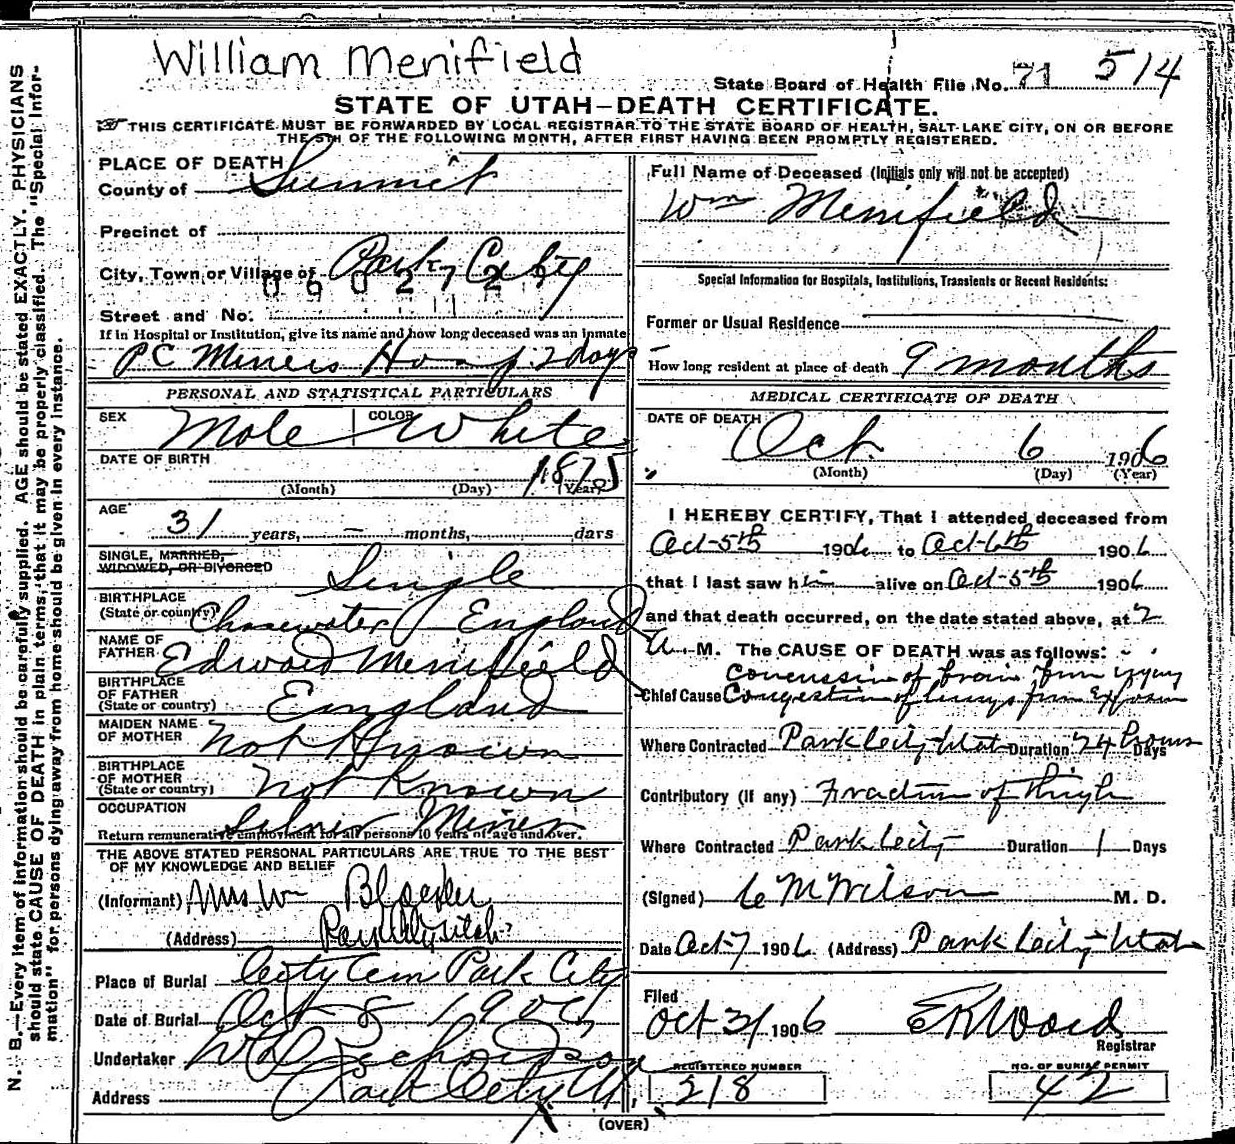 William Menifield
State Board of Health File No. 71 514
STATE OF UTAH—DEATH CERTIFICATE.
THIS CERTIFICATE MUST BE FORWARDED BY LOCAL REGISTRAR TO THE STATE BOARD OF HEALTH, SALT LAKE CITY, ON OR BEFORE
THE 5TH OF THE FOLLOWING MONTH, AFTER FIRST HAVING BEEN PROMPTLY REGISTERED.
N. B.—Every item of information should be carefully supplied. AGE should be stated EXACTLY. PHYSICIANS
should state CAUSE OF DEATH in plain terms, that it may be properly classified. The "Special Infor-
mation" for persons dying away from home should be given in every instance.
PLACE OF DEATH
County of Summit
Precinct of
City, Town or Village of Park City
0602729
Street and No.
If in Hospital or Institution, give its name and how long deceased was an inmate
PC Miners Hosp 2 days
PERSONAL AND STATISTICAL PARTICULARS
SEX Male COLOR White
DATE OF BIRTH 1875
(Month) (Day) (Year)
AGE
31 years, — months, days
SINGLE, MARRIED,
WIDOWED, OR DIVORCED Single
BIRTHPLACE
(State or country) Chasewater England
NAME OF
FATHER Edward Menifield
BIRTHPLACE
OF FATHER
(State or country) England
MAIDEN NAME
OF MOTHER Not Known
BIRTHPLACE
OF MOTHER
(State or country) Not Known
OCCUPATION Silver Miner
Return remunerative employment for all persons 10 years of age and over.
THE ABOVE STATED PERSONAL PARTICULARS ARE TRUE TO THE BEST
OF MY KNOWLEDGE AND BELIEF
(Informant) Mrs Wm
(Address) Park City Utah
Place of Burial City Cem Park City
Date of Burial Oct 8 1906
Undertaker Richardson
Address Park City Ut
Full Name of Deceased (Initials only will not be accepted)
Wm Menifield
Special Information for Hospitals, Institutions, Transients or Recent Residents:
Former or Usual Residence
How long resident at place of death 9 months
MEDICAL CERTIFICATE OF DEATH
DATE OF DEATH Oct. 6 1906
(Month) (Day) (Year)
I HEREBY CERTIFY, That I attended deceased from
Oct-5th 1906 to Oct-6th 1906
that I last saw him alive on Oct-5th 1906
and that death occurred, on the date stated above, at 2
A. M. The CAUSE OF DEATH was as follows:
Concussion of brain from injury
Chief Cause Congestion of lungs from Exposure
Where Contracted Park City Utah Duration 24 hours Days
Contributory (if any) Fracture of Thigh
Where Contracted Park City Duration 1 Days
(Signed) C M Wilson M. D.
Date Oct-7 1906 (Address) Park City Utah
Filed
Oct 31 1906 E R Wood
Registrar
REGISTERED NUMBER
218
NO. OF BURIAL PERMIT
42
(OVER)